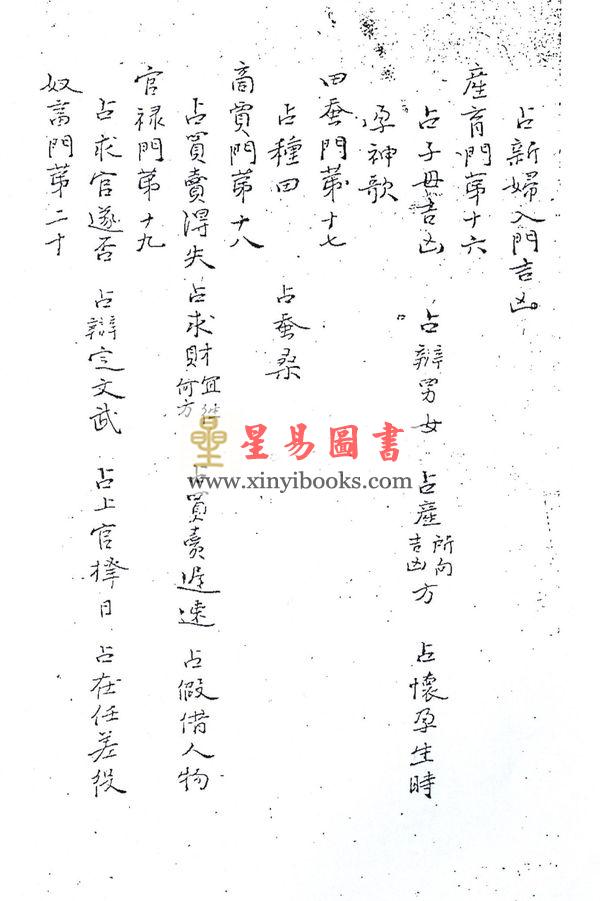 占新婦入門吉凶。
産育門苐十六
占子母吉凶 占辯男女 占産所向吉凶方 占懷孕生時
孕神歌
田蚕門苐十七
占種田 占蚕桑
商賈門苐十八
占買賣得失 占求財宜何方 占買賣遲速 占假借人物
官禄門苐十九
占求官遂否 占辯定文武 占上官擇日 占在任差役
奴畜門苐二十
星易圖書
www.xinyibooks.com